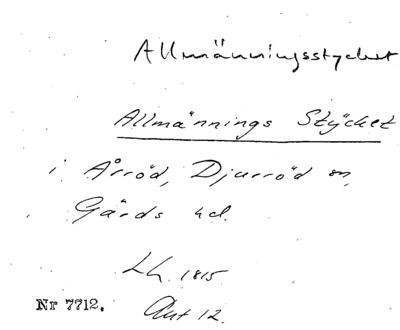 Allmänningsstycket
Allmännings Stÿcket
i Årröd, Djurröd sn,
Gärds hd.
Lh. 1815
Nr 7712. Akt 12.